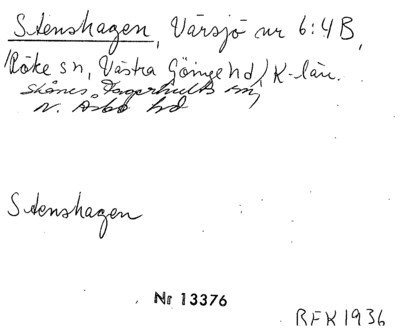 Stenshagen, Värsjö nr 6:4B,
/Röke sn, Västra Göinge hd/ K-län.
Skånes Fagerhults sn,
N. Åsbo hd
Stenshagen
Nr 13376
RFK 1936